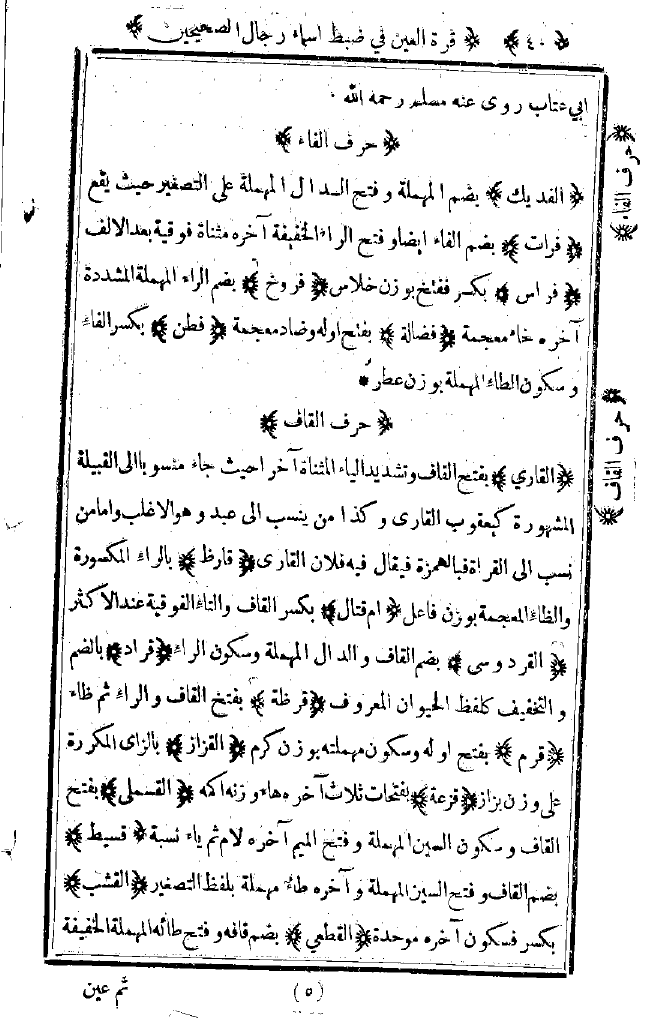 ﴿ ٤٠ ﴾ ﴿ قرة العين في ضبط اسماء رجال الصحيحين ﴾
ابي عتاب روى عنه مسلم رحمه الله .
﴿ حرف الفاء ﴾
﴿ الفديك ﴾ بضم المهملة وفتح الدال المهملة على التصغير حيث يقع
﴿ فرات ﴾ بضم الفاء ايضا وفتح الراء الخفيفة آخره مثناة فوقية بعد الالف
﴿ فراس ﴾ بكسر ففتح بوزن خلاس ﴿ فروخ ﴾ بضم الراء المهملة المشددة
آخره خاء معجمة ﴿ فضالة ﴾ بفتح اوله وضاد معجمة ﴿ فطن ﴾ بكسر الفاء
وسكون الطاء المهملة بوزن عطر *
﴿ حرف القاف ﴾
﴿ القاري ﴾ بفتح القاف وتشديد الياء المثناة آخرا حيث جاء منسوبا الى القبيلة
المشهورة كيعقوب القارى وكذا من ينسب الى عبد وهو الاغلب واما من
نسب الى القراة فبالهمزة فيقال فيه فلان القارى ﴿ قارظ ﴾ بالراء المكسورة
والظاء المعجمة بوزن فاعل ﴿ ام قتال ﴾ بكسر القاف والتاء الفوقية عند الاكثر
﴿ القردوسى ﴾ بضم القاف والدال المهملة وسكون الراء ﴿ قراد ﴾ بالضم
والتخفيف كلفظ الحيوان المعروف ﴿ قرظة ﴾ بفتح القاف والراء ثم ظاء
﴿ قرم ﴾ بفتح اوله وسكون مهملته بوزن كرم ﴿ القزاز ﴾ بالزاى المكررة
على وزن بزاز ﴿ قزعة ﴾ بفتحات ثلاث آخره هاء وزنه اكمه ﴿ القسملى ﴾ بفتح
القاف وسكون السين المهملة وفتح الميم آخره لام ثم ياء نسبة ﴿ قسيط ﴾
بضم القاف وفتح السين المهملة وآخره طاء مهملة بلفظ التصغير ﴿ القشب ﴾
بكسر فسكون آخره موحدة ﴿ القطعي ﴾ بضم قافه وفتح طائه المهملة الخفيفة
(٥)
ثم عين
﴿ حرف الفاء ﴾
﴿ حرف القاف ﴾